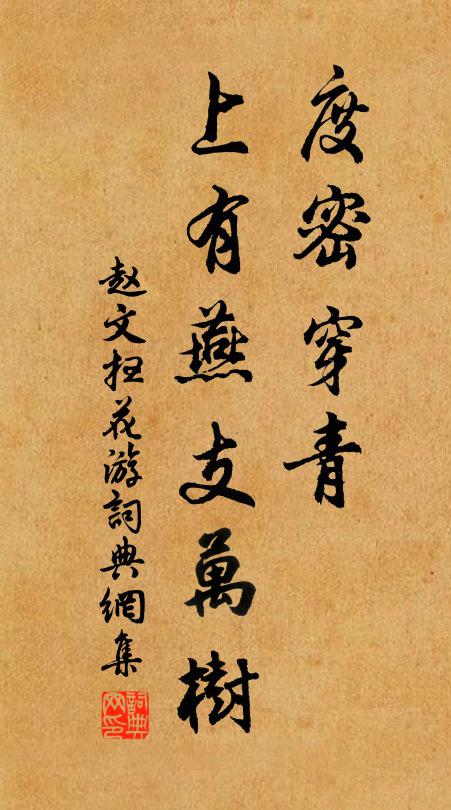 度密穿青
上有燕支萬樹
赵文抂花游詞典網集
詞典網印